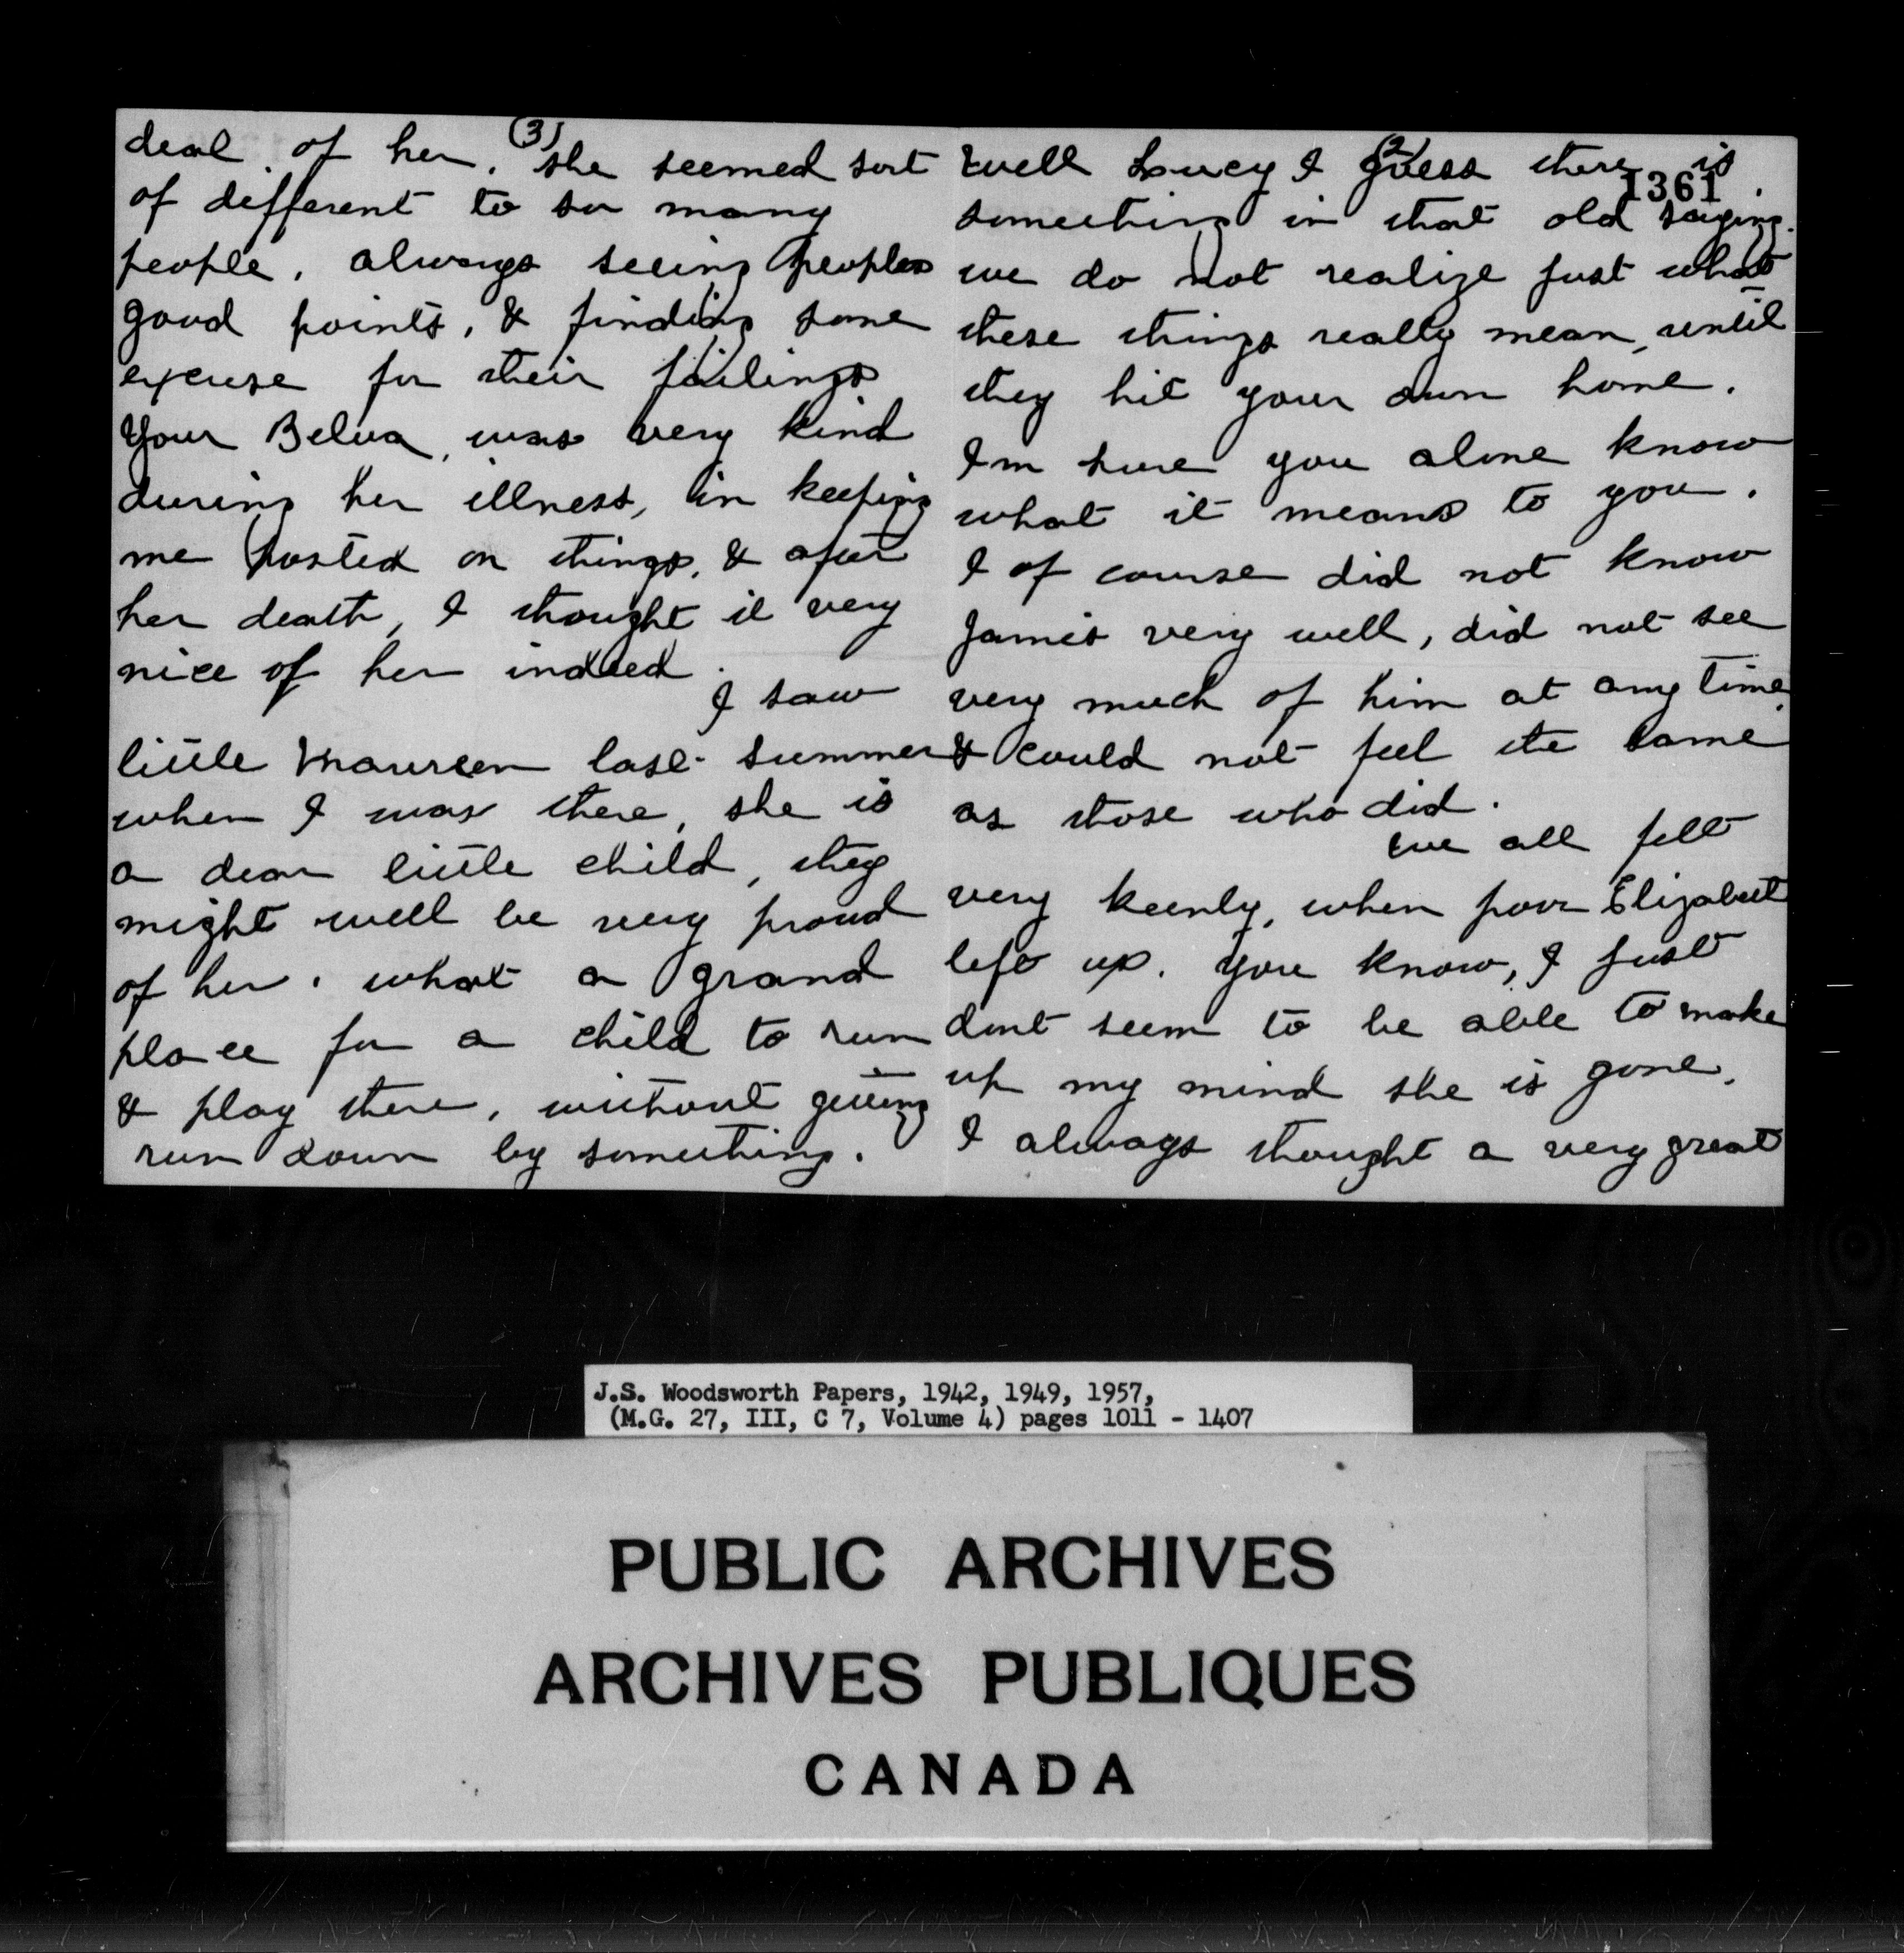 (3)
deal of her. She seemed sort
of different to so many
people, always seeing peoples
good points, & finding some
excuse for their failings
Your Belva, was very kind
during her illness, in keeping
me posted on things, & after
her death, I thought it very
nice of her indeed.
I saw
little Maureen last summer
when I was there, she is
a dear little child, they
might well be very proud
of her. what a grand
place for a child to run
& play there, without getting
run down by something.
(2)
1361
Well Lucy I guess there is
something in that old saying.
we do not realize just what
these things really mean, until
they hit your own home.
Im sure you alone know
what it means to you.
I of course did not know
James very well, did not see
very much of him at any time,
& could not feel the same
as those who did.
We all felt
very keenly, when poor Elizabeth
left us. You know, I just
dont seem to be able to make
up my mind she is gone.
I always thought a very great
J.S. Woodsworth Papers, 1942, 1949, 1957,
(M.G. 27, III, C 7, Volume 4) pages 1011 - 1407
PUBLIC ARCHIVES
ARCHIVES PUBLIQUES
CANADA